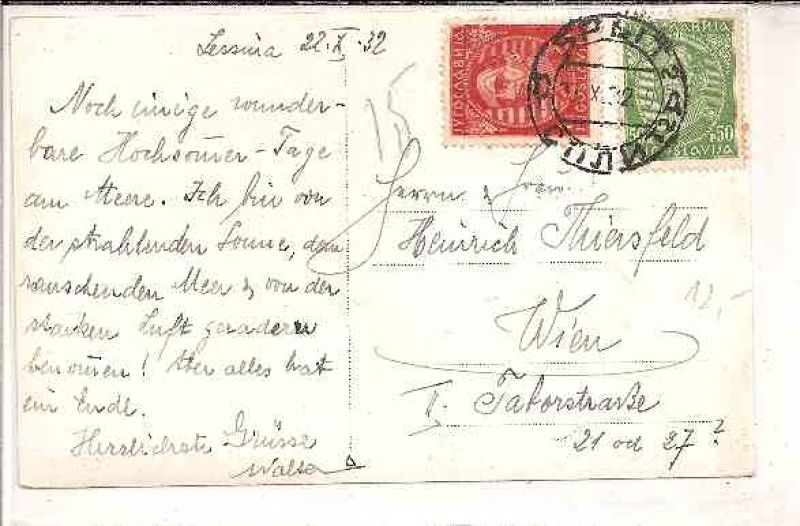 Lesina 22.X.32
Noch einige wunder-
bare Hochsommer-Tage
am Meere. Ich bin von
der strahlenden Sonne, dem
rauschenden Meer & von der
starken Luft geradezu
benommen! Aber alles hat
ein Ende.
Herzlichste Grüsse
Walter
15
ЈУГОСЛАВИЈА
JUGOSLAVIJA
X. 32
Herrn &
Heinrich Thiersfeld
12,-
Wien
II. Taborstraße
21 od 27?